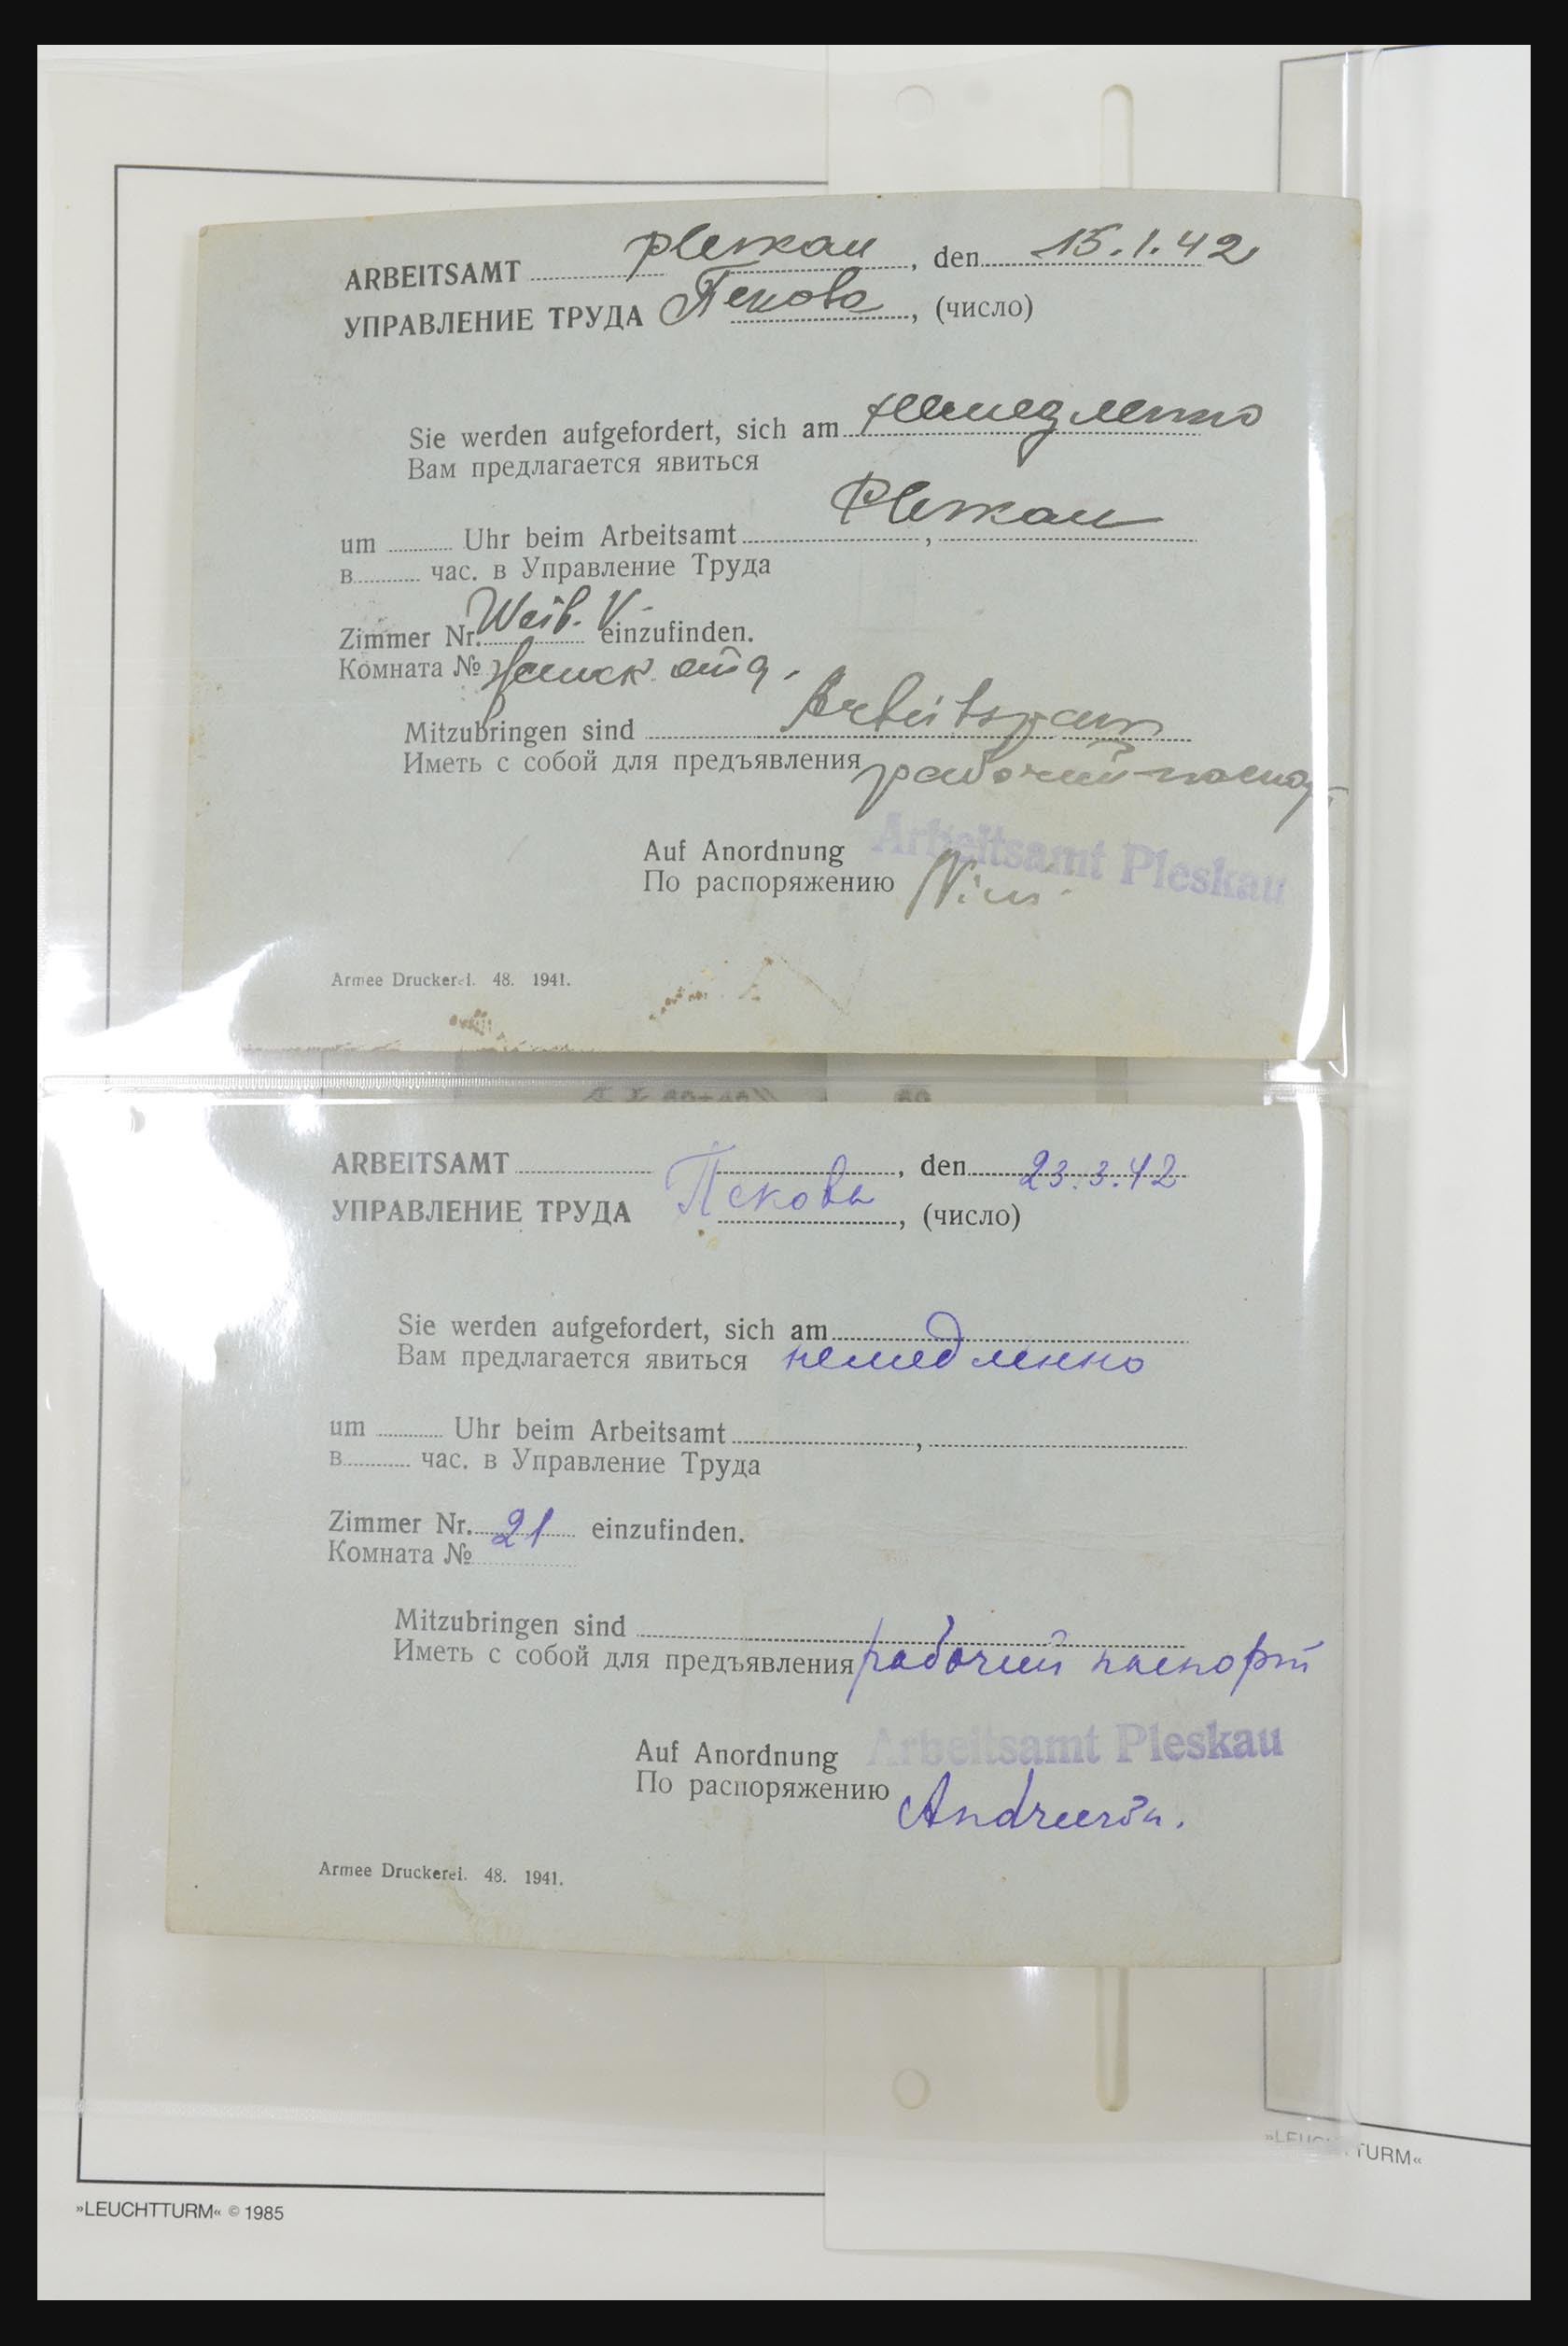 ARBEITSAMT Pleskau, den 15.1.42
УПРАВЛЕНИЕ ТРУДА Пскова, (число)
Sie werden aufgefordert, sich am немедленно
Вам предлагается явиться
um Uhr beim Arbeitsamt Pleskau,
в час. в Управление Труда
Zimmer Nr. Weib. V. einzufinden.
Комната № Женск. отд.
Mitzubringen sind Arbeitspass
Иметь с собой для предъявления рабочий паспорт
Auf Anordnung Arbeitsamt Pleskau
По распоряжению
Armee Druckerei. 48. 1941.
ARBEITSAMT, den 23.3.42
УПРАВЛЕНИЕ ТРУДА Пскова, (число)
Sie werden aufgefordert, sich am
Вам предлагается явиться немедленно
um Uhr beim Arbeitsamt,
в час. в Управление Труда
Zimmer Nr. 21 einzufinden.
Комната №
Mitzubringen sind
Иметь с собой для предъявления рабочий паспорт
Auf Anordnung Arbeitsamt Pleskau
По распоряжению
Armee Druckerei. 48. 1941.
»LEUCHTTURM«
»LEUCHTTURM« © 1985